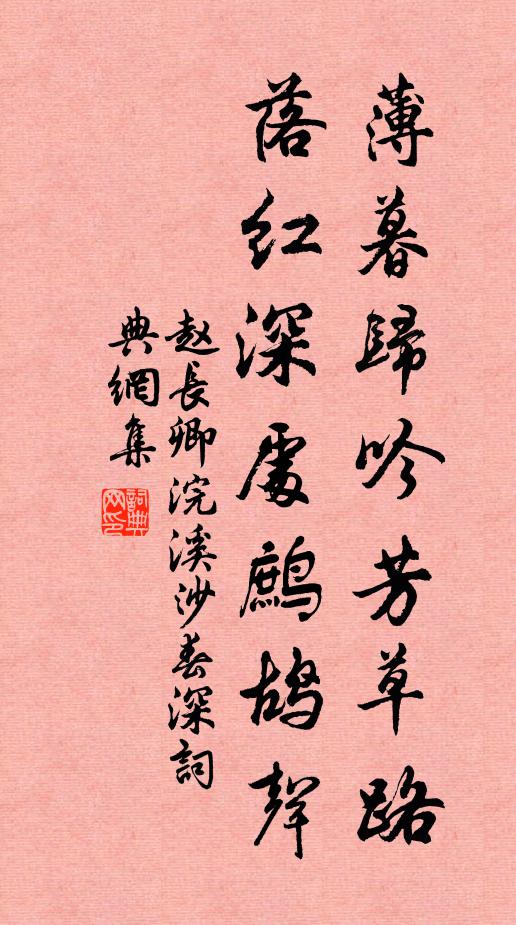 薄暮歸吟芳草路
落红深處鷓鴣聲
赵長卿浣溪沙春深詞
典網集
詞典
网印